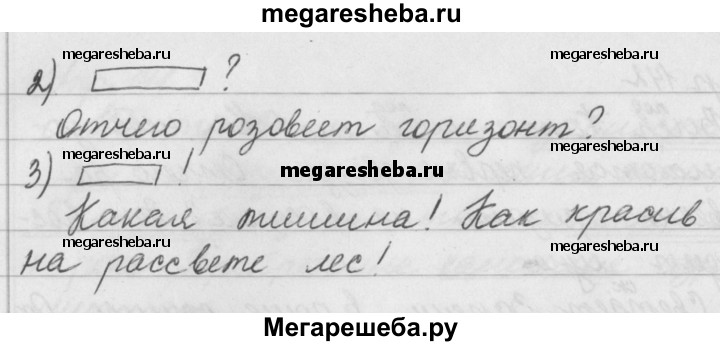 megaresheba.ru
megaresheba.ru megaresheba.ru
2) ?
Отчего розовеет горизонт?
megaresheba.ru
3) !
Какая тишина! Как красив
megaresheba.ru megaresheba.ru
на рассвете лес!
Мегарешеба.ру